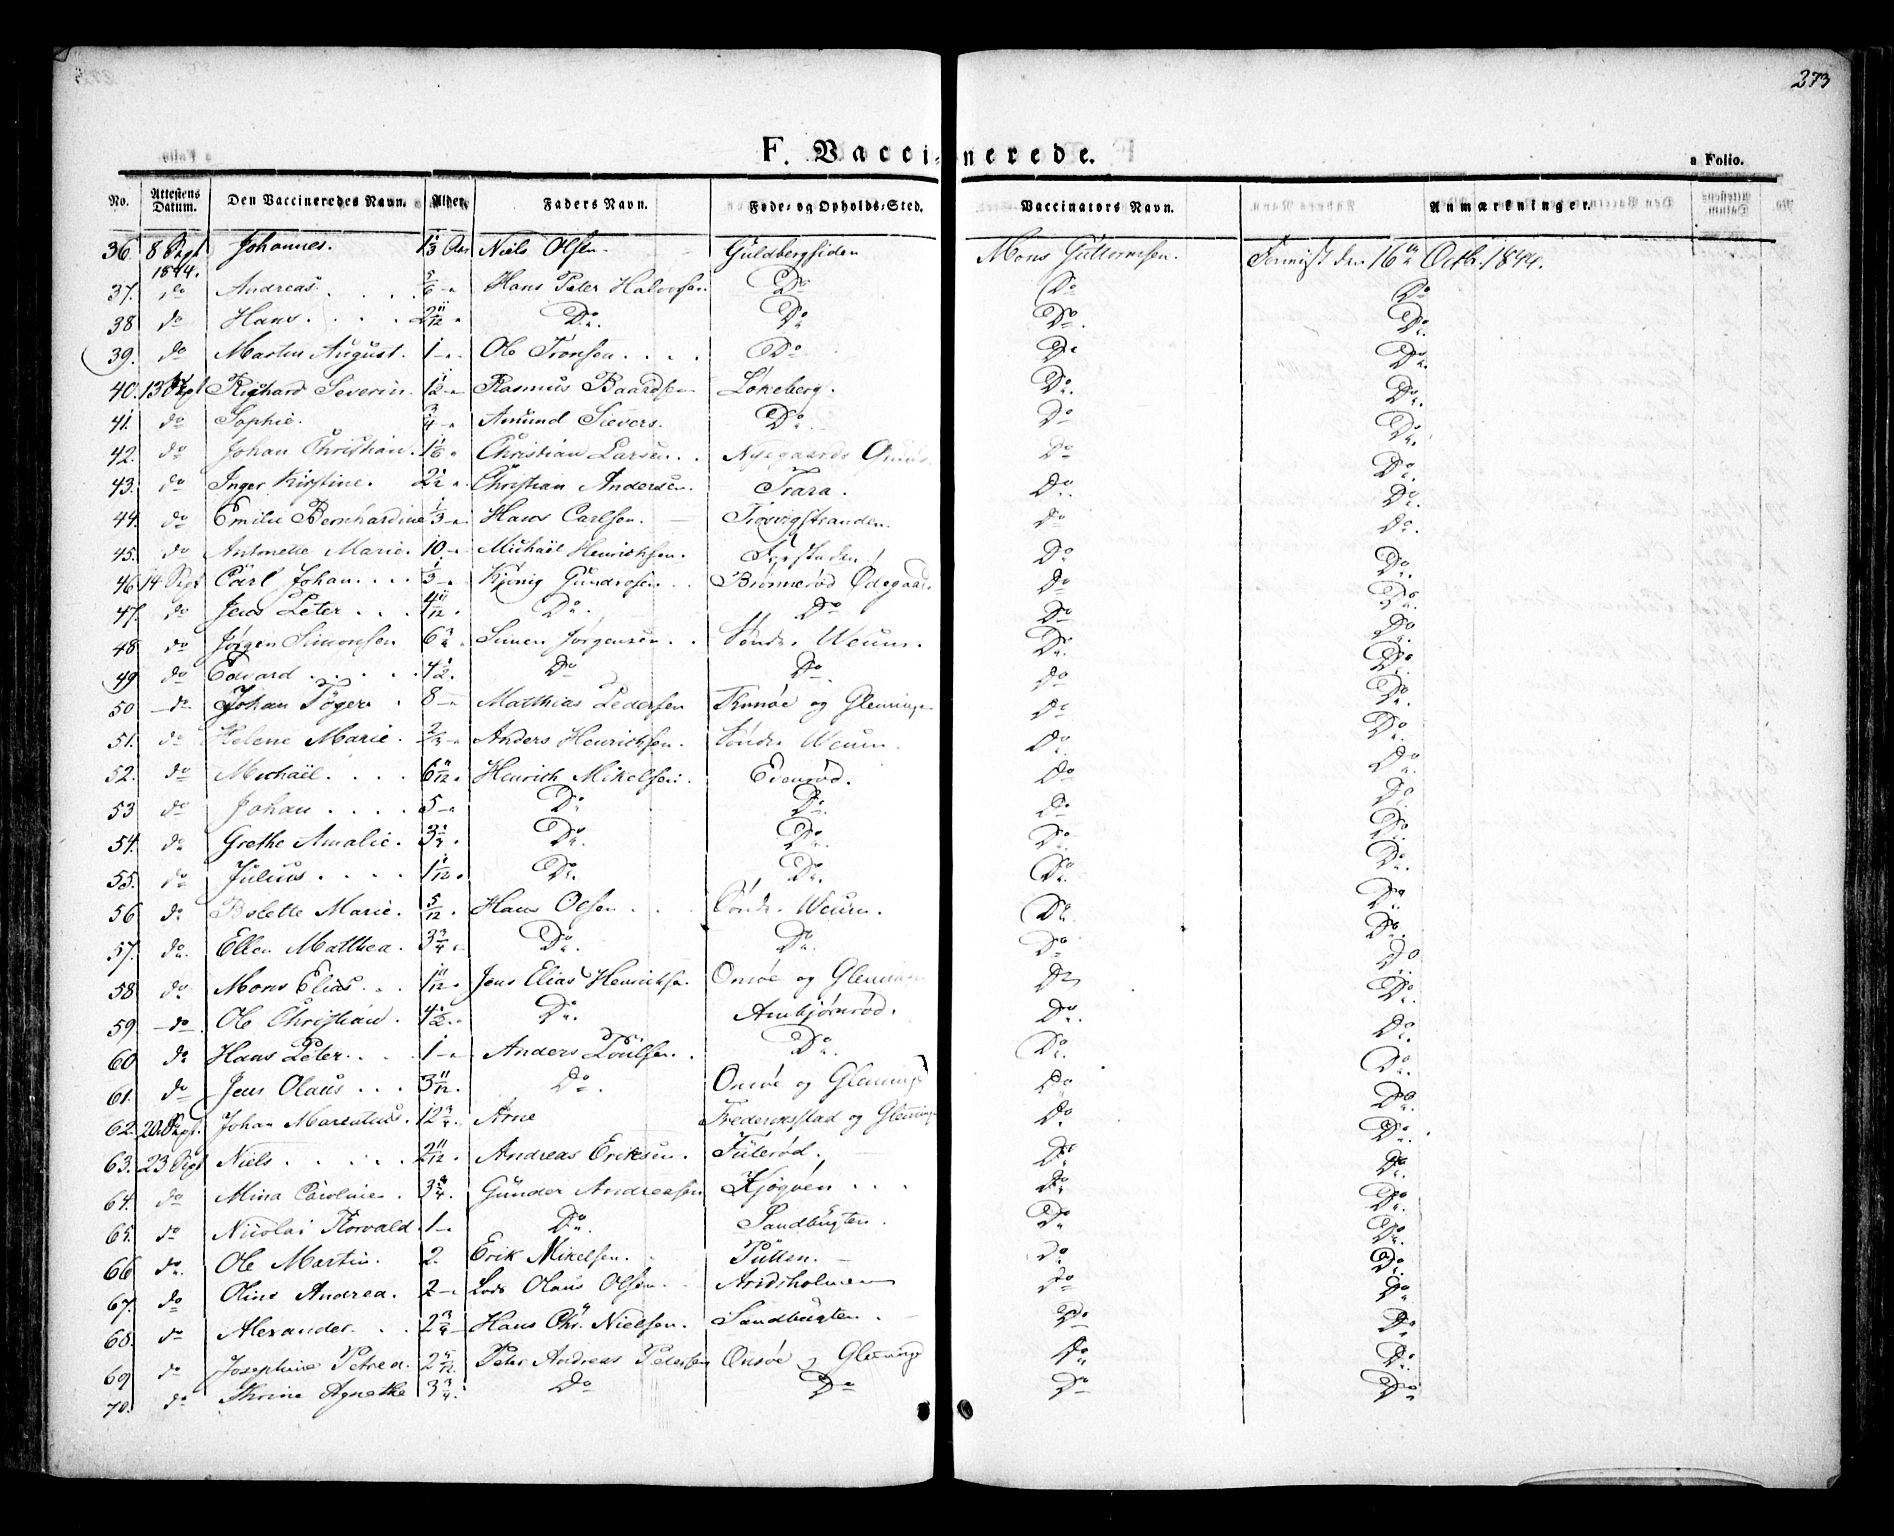 273
F. Vaccinerede.
a Folio.
No. Attestens Datum. Den Vaccineredes Navn. Alder. Faders Navn. Føde- og Opholds-Sted. Vaccinators Navn. Anmærkninger.
36. 8 Sept 1844. Johannes. 1 1/3 Aar Niels Olsen Guldbergsiden Mons Guttormsen. den 16 Octbr. 1844.
37. do Andreas. 5/6 Hans Peter Halvorsen Do Do Do
38 do Hans. 2 11/12 Do. Do Do. Do.
39. do Martin August. 1 Ole Tronsen Do Do Do.
40. 13 Sept Richard Severin. 1 1/2 Rasmus Baardsen Løkeberg. Do. Do.
41. do Sophie. 3/4 Amund Sievers. Do. Do Do.
42. do Johan Christian. 1 1/6 Christian Larsen. Do Do.
43. do Inger Kirstine. 2 1/2 Christian Andersen. Trara. Do. Do.
44. do Emilie Bernhardine 1/3 Hans Carlsen. Trosvigstranden. Do Do.
45. do Antonette Marie. 10 Michael Henriksen. Do Do.
46. 14 Sept Carl Johan. 1/3 Gundrosen Do Do.
47. do Jens Peter 4 11/12 Do. Do Do Do.
48. do Jørgen Simonsen 6 Simen Jørgensen. Søndre Weum. Do. Do.
49 do Edvard 4 1/2. Do Do. Do Do.
50 do Johan 8 Matthias Pedersen og Glemminge Do Do.
51. do Helene Marie. 2/3 Anders Henrichsen. Søndre Weum. Do. Do.
52. do Michaël. 6 11/12. Henrich Mikelsen. Edenrød. Do Do.
53 do Johan 5 Do Do. Do Do.
54. do Grethe Amalie. 3 Do. Do. Do. Do.
55. do Julius. 1 1/12. Do. Do. Do. Do.
56 do Bolette Marie. 5/12. Hans Olsen Søndre Weum. Do. Do.
57. do. Ellen Matthea. 3 3/4 Do. Do. Do Do.
58. do Mons Elias. 1 11/12. Jens Elias Henriksen. Onsøe og Glemminge Do Do.
59. do Ole Christian. 4 1/2. Do. Ambjørnrød. Do. Do.
60 do Hans Peter. 1 Anders Poulsen. Do. Do. Do.
61. do Jens Olaus 3 11/12. Do. Onsøe og Glemminge Do Do.
62. 20 Sept. Johan Marentius. 12 3/4. Arne Frederiksstad og Glemminge Do. Do.
63. 23 Sept Niels 2 11/12. Andreas Eriksen. Tuterød. Do Do.
64. do Mina Caroline. 3 3/4. Gunder Andreasen Kjøgøen Do Do.
65. do Nicolai Thorvald 1 Do. Sandbugten. Do Do.
66 do. Ole Martin. 2. Erik Mikelsen. Putten. Do Do.
67. do Oline Andrea. 2 Lods Olaus Olsen. Do Do
68. do Alexander. 2 3/4 Hans Chr. Nielsen. Sandbugten Do Do
69 do Josephine Petrea. 2 5/12. Peter Andreas Petersen Onsøe og Glemminge Do Do.
70. do Thrine Agnethe 3 3/4. Do Do Do Do.